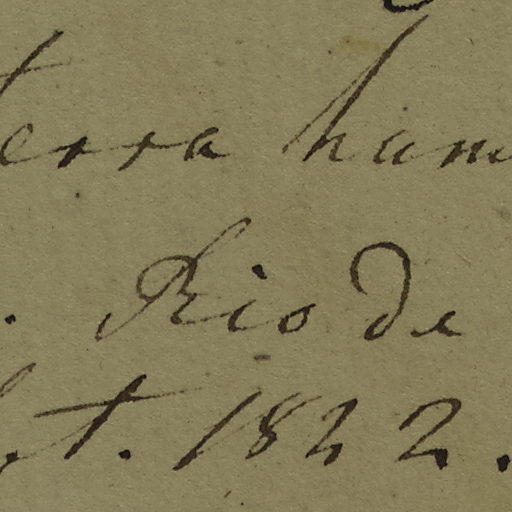 terra hum
. Rio de
pt. 1822.